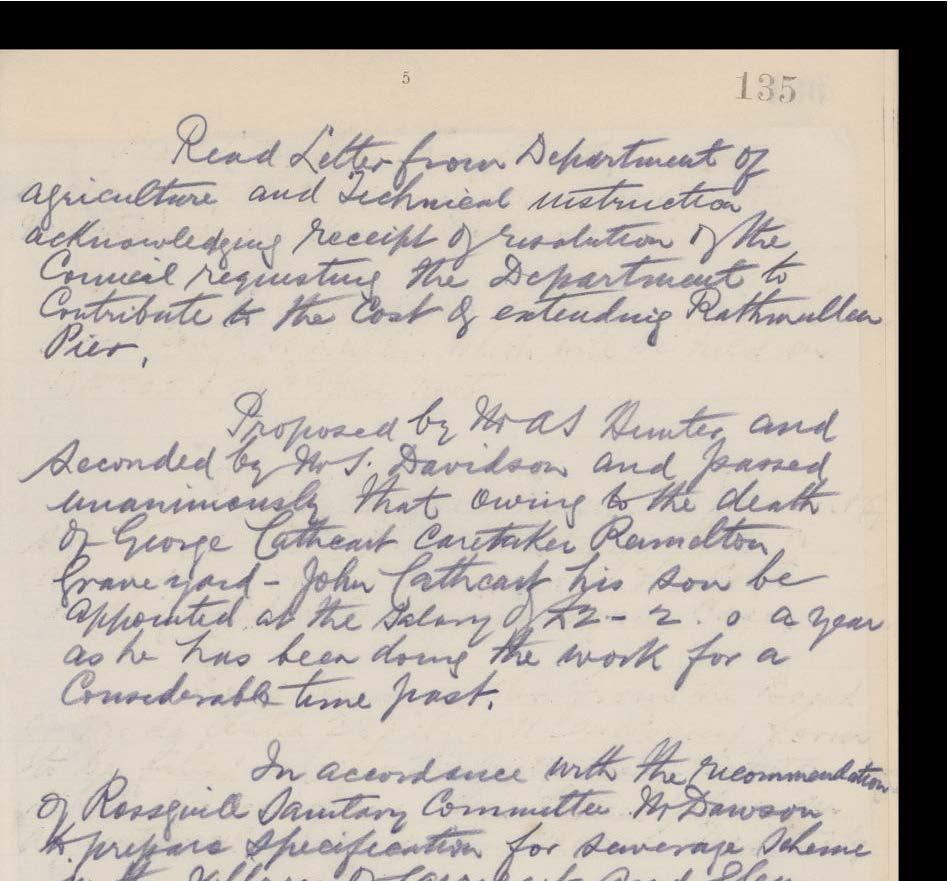 5
135
Read Letter from Department of
agriculture and Technical instruction
acknowledging receipt of resolution of the
Council requesting the Department to
Contribute to the Cost of extending Rathmullen
Pier.
Proposed by Mr A S Hunter and
Seconded by Mr S. Davidson and passed
unanimously that owing to the death
of George Cathcart Caretaker Ramelton
Graveyard - John Cathcart his son be
appointed at the Salary of £2 - 2 . 0 a year
as he has been doing the work for a
Considerable time past.
In accordance with the recommendation
of Rossguill Sanitary Committee Mr Dawson
to prepare Specification for sewerage Scheme
Village of Carrigart and